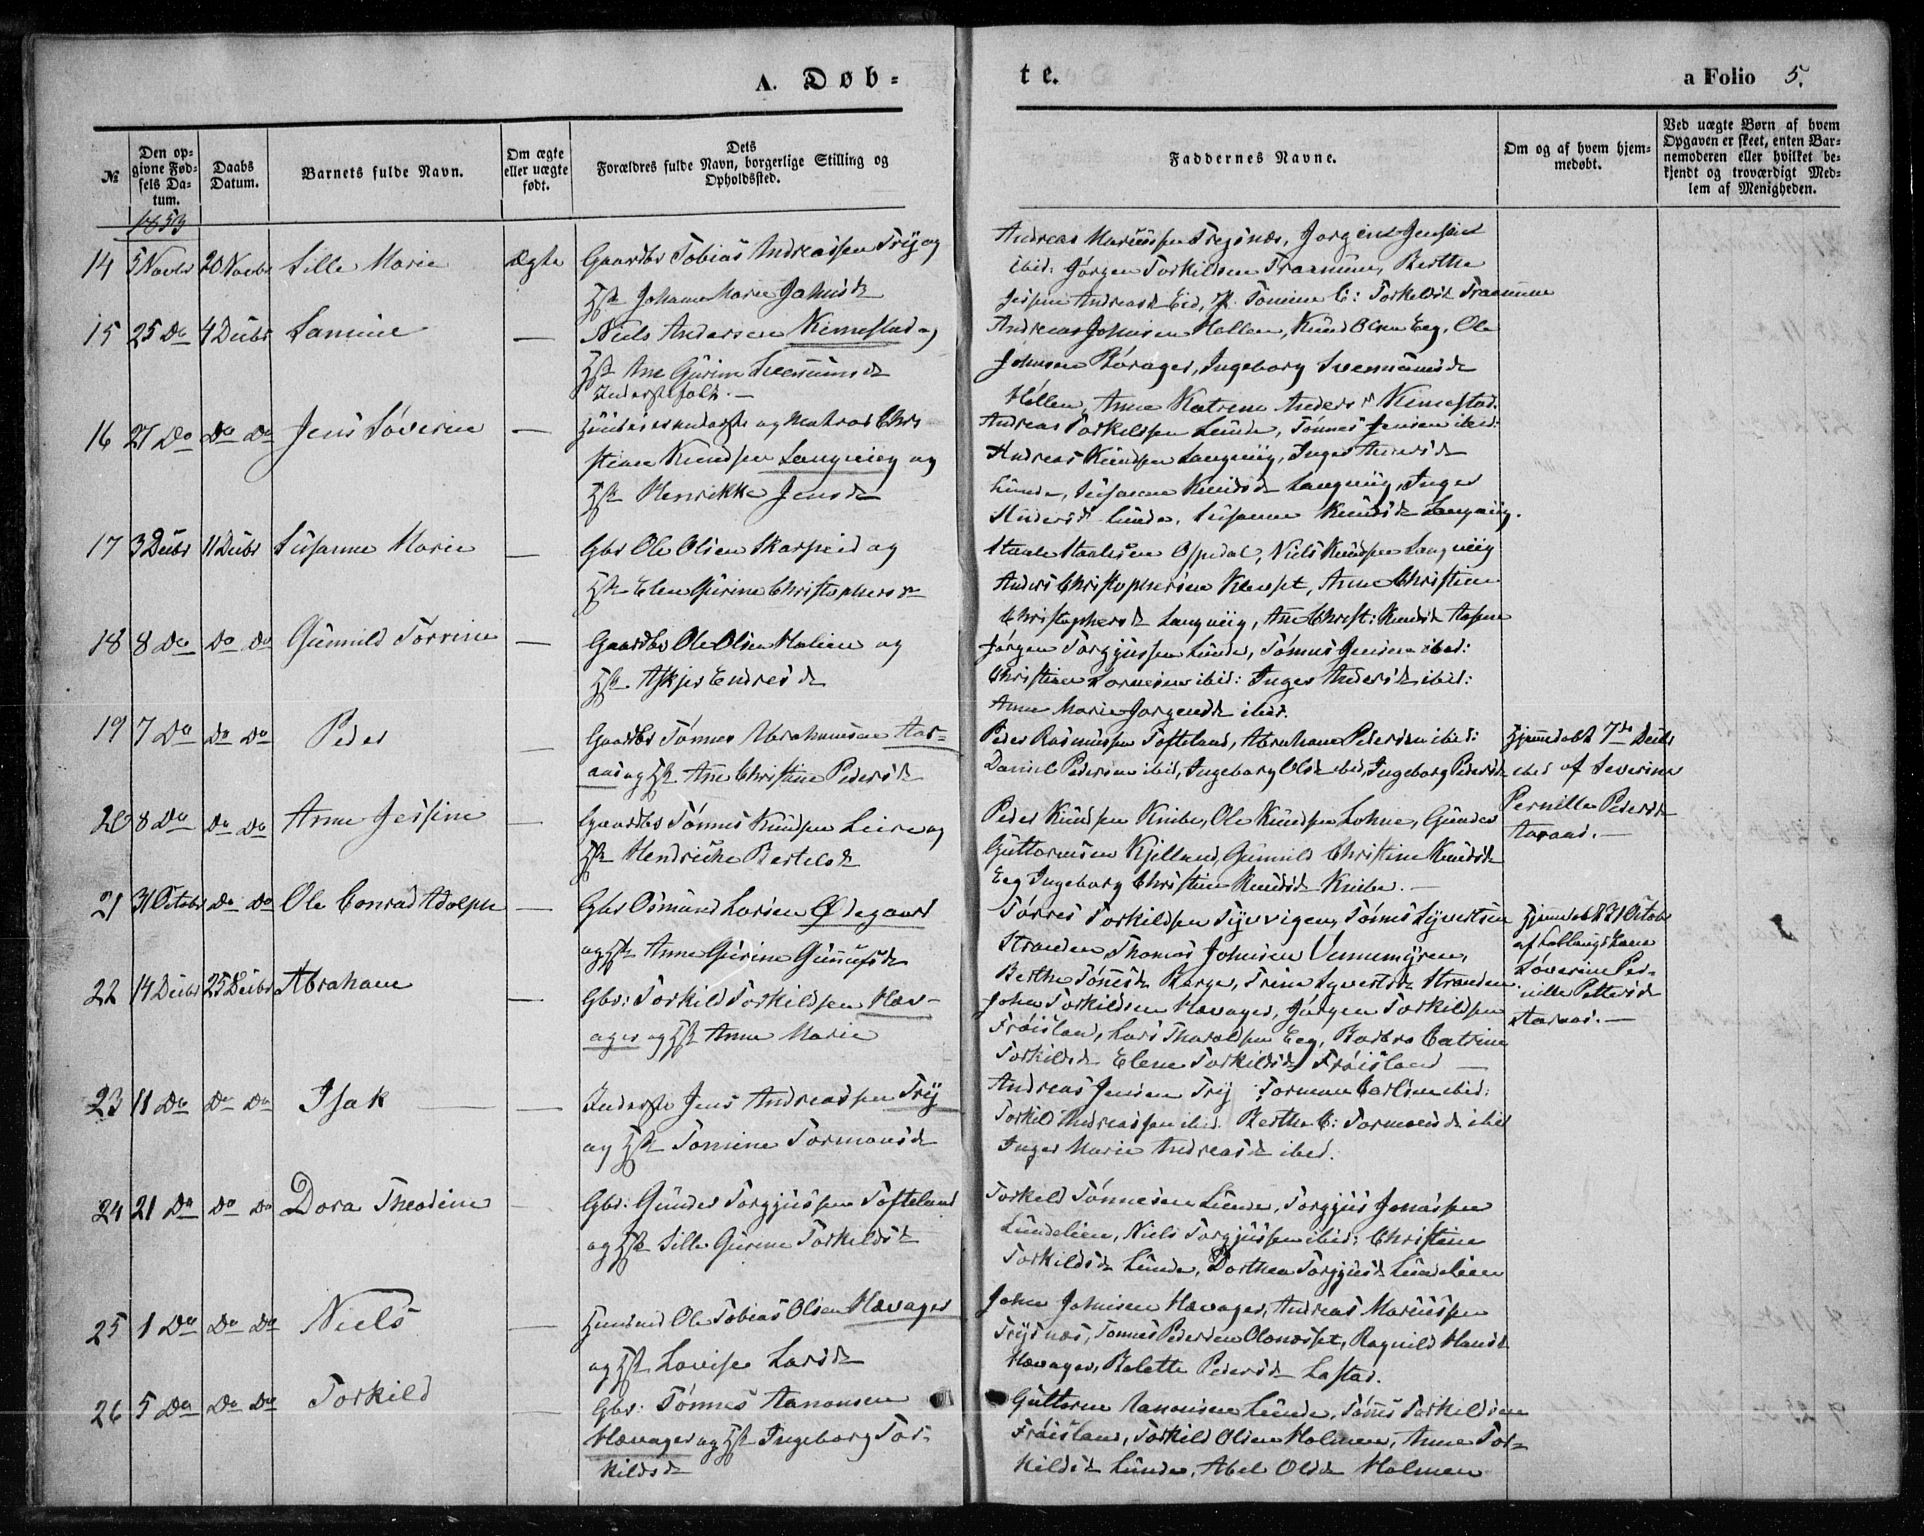 A. Døb-
te.
a Folio 5.
№
Den op-
givne Fød-
sels Da-
tum.
Daabs
Datum.
Barnets fulde Navn.
Om ægte
eller uægte
født.
Dets
Forældres fulde Navn, borgerlige Stilling og
Opholdssted.
Faddernes Navne.
Om og af hvem hjem-
medøbt.
Ved uægte Børn af hvem
Opgaven er skeet, enten Bar-
nemoderen eller hvilket be-
kjendt og troværdigt Med-
lem af Menigheden.
1853
14 5 Novbr 20 Novbr Sille Marie ægte Gaardbr Tobias Andreassen Trÿ og
Hst Johanne Marie Johnsd
Andreas Mariussen Trysnæs, Jørgen Jensen
ibid: Jørgen Torkildsen Traanum, Berthe
Andreasd Eeg, Tomine C: Torkeldsd Traanum
15 25 Do 4 Decbr Samine — Niels Andersen Kimestad og
Hst Ane Gurine Svenniunsd
Inderstfolk. —
Andreas Johnsen Hollen, Knud Olsen Eeg, Ole
Johnsen Råvager, Ingeborg Svennumsd
Høllen, Anne Katrine Andersd Kimestad.
16 27 Do Do Do Jens Søverin — og Matros Chri
stian Knudsen Langveieg og
Hst Henrikke Jensd
Andreas Torkelsen Lunde, Tønnes Jensen ibid:
Andreas Knudsen Langveig, Inger Andersd
Lunde, Susanne Knudsd Langveig, Inger
Andersd Lunde, Susanne Knudsd Langveig.
17 3 Decbr 11 Decbr Susanne Marie — Gbr Ole Olsen Skarpeid og
Hst Elen Gurine Christophersd
Staale Staalesen Opsdal, Niels Knudsen Langveig
Anders Christophersen Klepset, Anne Christine
Christophersd Langveig, Ane Christ: Knudsd Aspen
18 8 Do Do Do Gunnild Torrine — Gaardbr Ole Olsen Holien og
Hst Asksjer Endresd
Jørgen Torgjussen Lunde, Tønnes Jensen ibid:
Christian ibid: Inger Andersd ibid:
Anne Marie Jørgensd ibid.
19 7 Do Do Do Peder — Gaardbr Tønnes Abrahamsen Aar-
aas og Hst Ane Christine Pedersd
Peder Rasmussen Tofteland, Abraham Pedersen ibid:
Daniel Pedersen ibid, Ingeborg Olsd ibid, Ingeborg Pedersd ibid
Hjemmedøbt 7de Decbr
af Severine
Pernille Pedersd
Aaraas. —
20 8 Do Do Do Anne Jessine — Gaardbr Tønnes Knudsen Leire og
Hst Hendrikke Bertelsd
Peder Knudsen Knibe, Ole Knudsen Lohne, Gunder
Guttormsen Kjelland, Gunnild Christine Knudsd
Eeg Ingeborg Christine Knudsd Knibe. —
21 31 Octobr Do Do Ole Conrad Adolph — Gbr Osmund Larsen Ødegaard
og Hst Anne Gurine Gunnufsd
Tørres Torkildsen Tyvvigen, Tønnes Syvertsen
Stranden Thomas Johnsen Vennemyren,
Berthe Tønnesd Berge, Trine Syvertsd Stranden
Hjemmedøbt 31 Octobr
af
Søverine Per-
nille Pettersd
Aaraas. —
22 14 Decbr 25 Decbr Abraham — Gbr: Torkild Torkildsen Hæv-
ager og Hst Anne Marie
John Torkildsen Hævager, Jørgen Torkildsen
Frøisland, Lars Tharalsen Eeg, Barbro Catrine
Torkildsd Elene Torkildsd Frøisland —
23 11 Do Do Do Isak — Inderste Jens Andreassen Trÿ
og Hst Tomine Tormonsd
Andreas Jensen Trÿ Tormon Carlsen ibid:
Torkild Andreassen ibid. Berthe C: Tormonsd ibid
Inger Marie Andreasd ibid.
24 21 Do Do Do Dora Theodine — Gbr: Gunder Torgjussen Tofteland
og Hst Sille Gurine Torkildsd
Torkild Tønnesen Lunde, Torgjus Jonassen
Lundelien, Niels Torgjussen ibid: Christine
Torkildsd Lunde, Dorthea Torgjusd Lundelien
25 1 Do Do Do Niels — Huusmd Ole Tobias Olsen Hævager
og Hst Lovise Larsd
John Johnsen Hævager, Andreas Mariussen
Trysnæs, Tønnes Pedersen Olonæsset, Ragnild Hansd
Hævager, Bolette Pedersd Lastad.
26 5 Do Do Do Torkild — Gbr: Tønnes Aanonsen
Hævager og Hst Ingeborg Tor-
kildsd
Guttorm Aanonsen Lunde, Tønnes Torkildsen
Frøisland, Torkild Olsen Holmen, Anne Tor-
kildsd Lunde, Abel Olsd Holmen